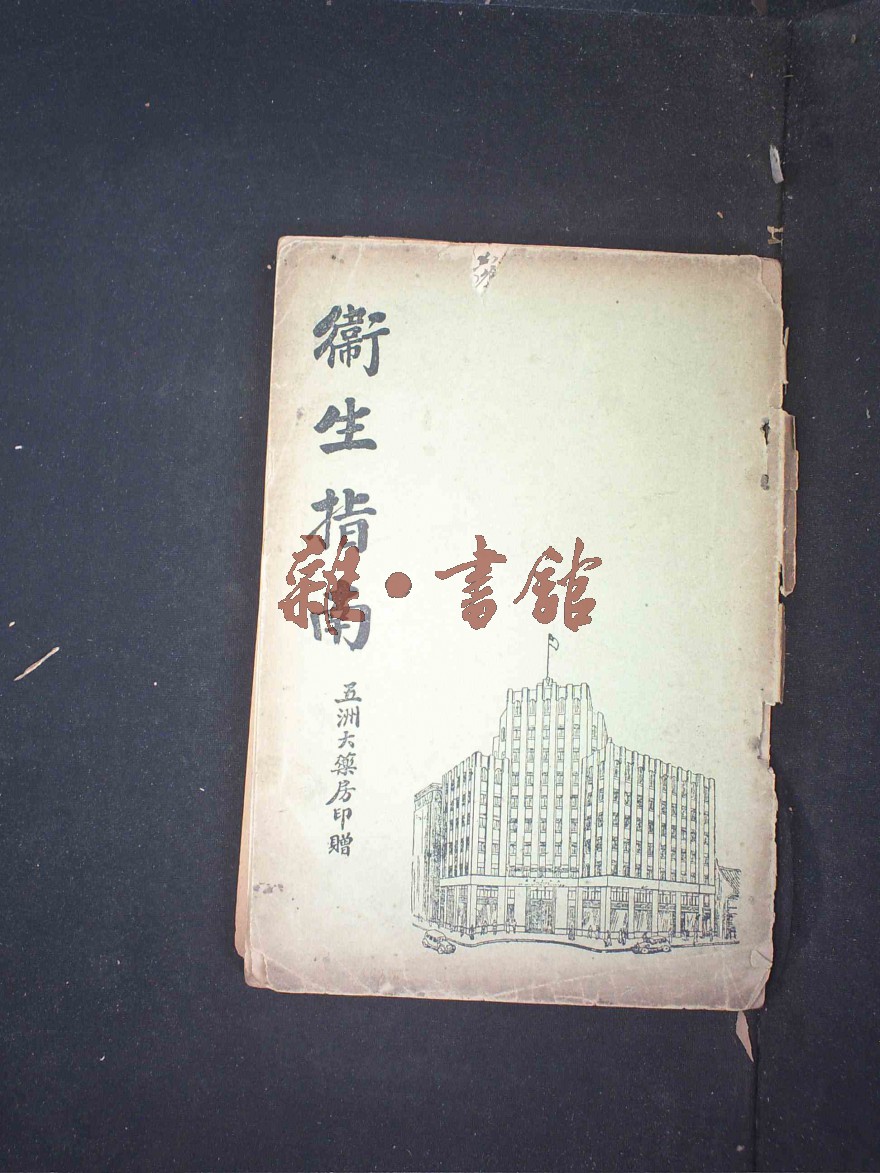 衞生指南
五洲大藥房印贈
雜·書館